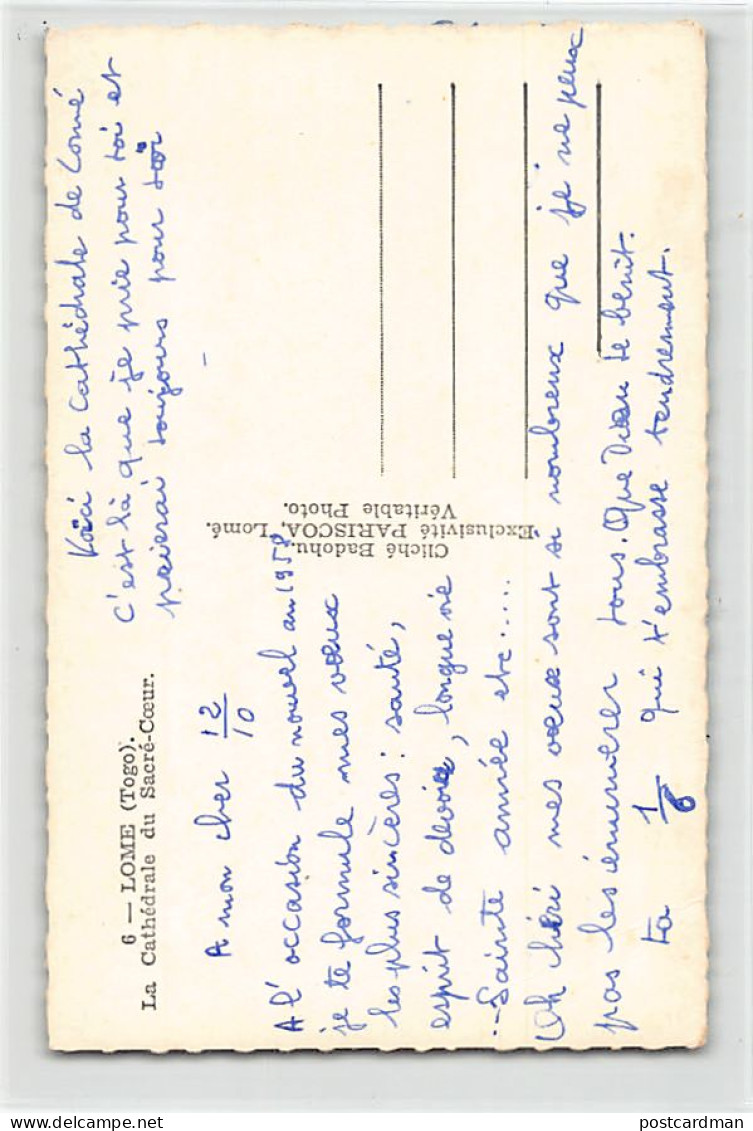 6 — LOME (Togo).
La Cathédrale du Sacré-Cœur.
Voici la Cathédrale de Lomé
C'est là que je prie pour toi et
prierai toujours pour toi
A mon cher 12/10
A l'occasion du nouvel an 1958
je te formule mes vœux
les plus sincères : santé,
esprit de devoir, longue vie
Sainte année etc.....
Oh chéri mes vœux sont si nombreux que je ne peux
pas les énumérer tous. Que Dieu te bénit.
ta 1/6 qui t'embrasse tendrement.
Cliché Badohu.
Exclusivité PARISCOA, Lomé.
Véritable Photo.
postcardman